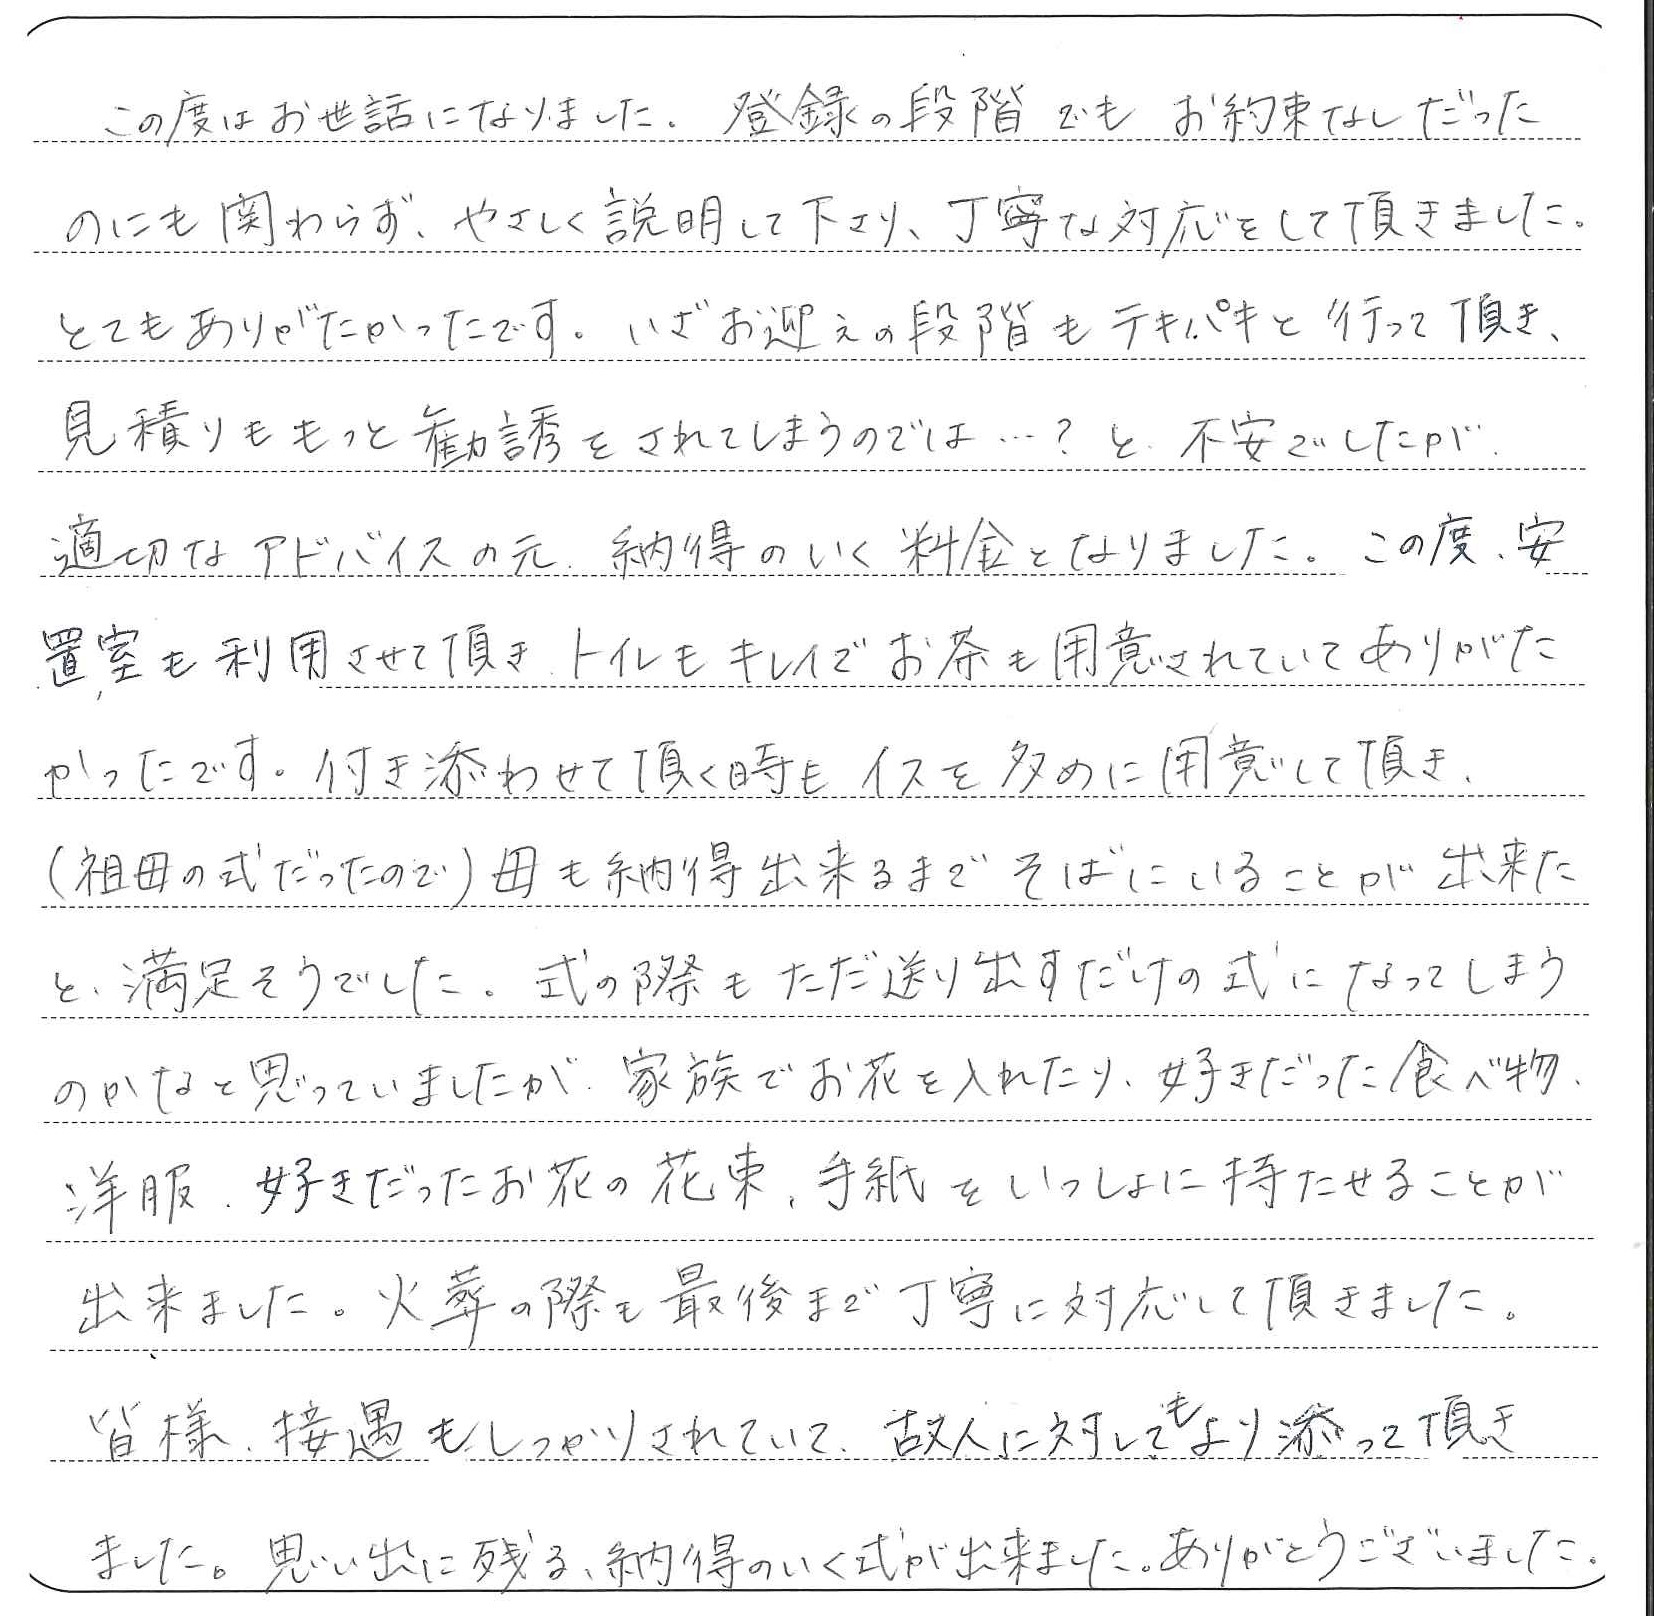 この度はお世話になりました。登録の段階でもお約束なしだった
のにも関わらず、やさしく説明して下さり、丁寧な対応をして頂きました。
とてもありがたかったです。いざお迎えの段階もテキパキと行って頂き、
見積りももっと勧誘をされてしまうのでは…?と、不安でしたが、
適切なアドバイスの元、納得のいく料金となりました。この度、安
置室も利用させて頂き、トイレもキレイでお茶も用意されていてありがた
かったです。付き添わせて頂く時もイスを多めに用意して頂き、
(祖母の式だったので)母も納得出来るまでそばにいることが出来た
と、満足そうでした。式の際もただ送り出すだけの式になってしまう
のかなと思っていましたが、家族でお花を入れたり、好きだった食べ物、
洋服、好きだったお花の花束、手紙をいっしょに持たせることが
出来ました。火葬の際も最後まで丁寧に対応して頂きました。
皆様、接遇もしっかりされていて、故人に対してもより添って頂き
ました。思い出に残る、納得のいく式が出来ました。ありがとうございました。